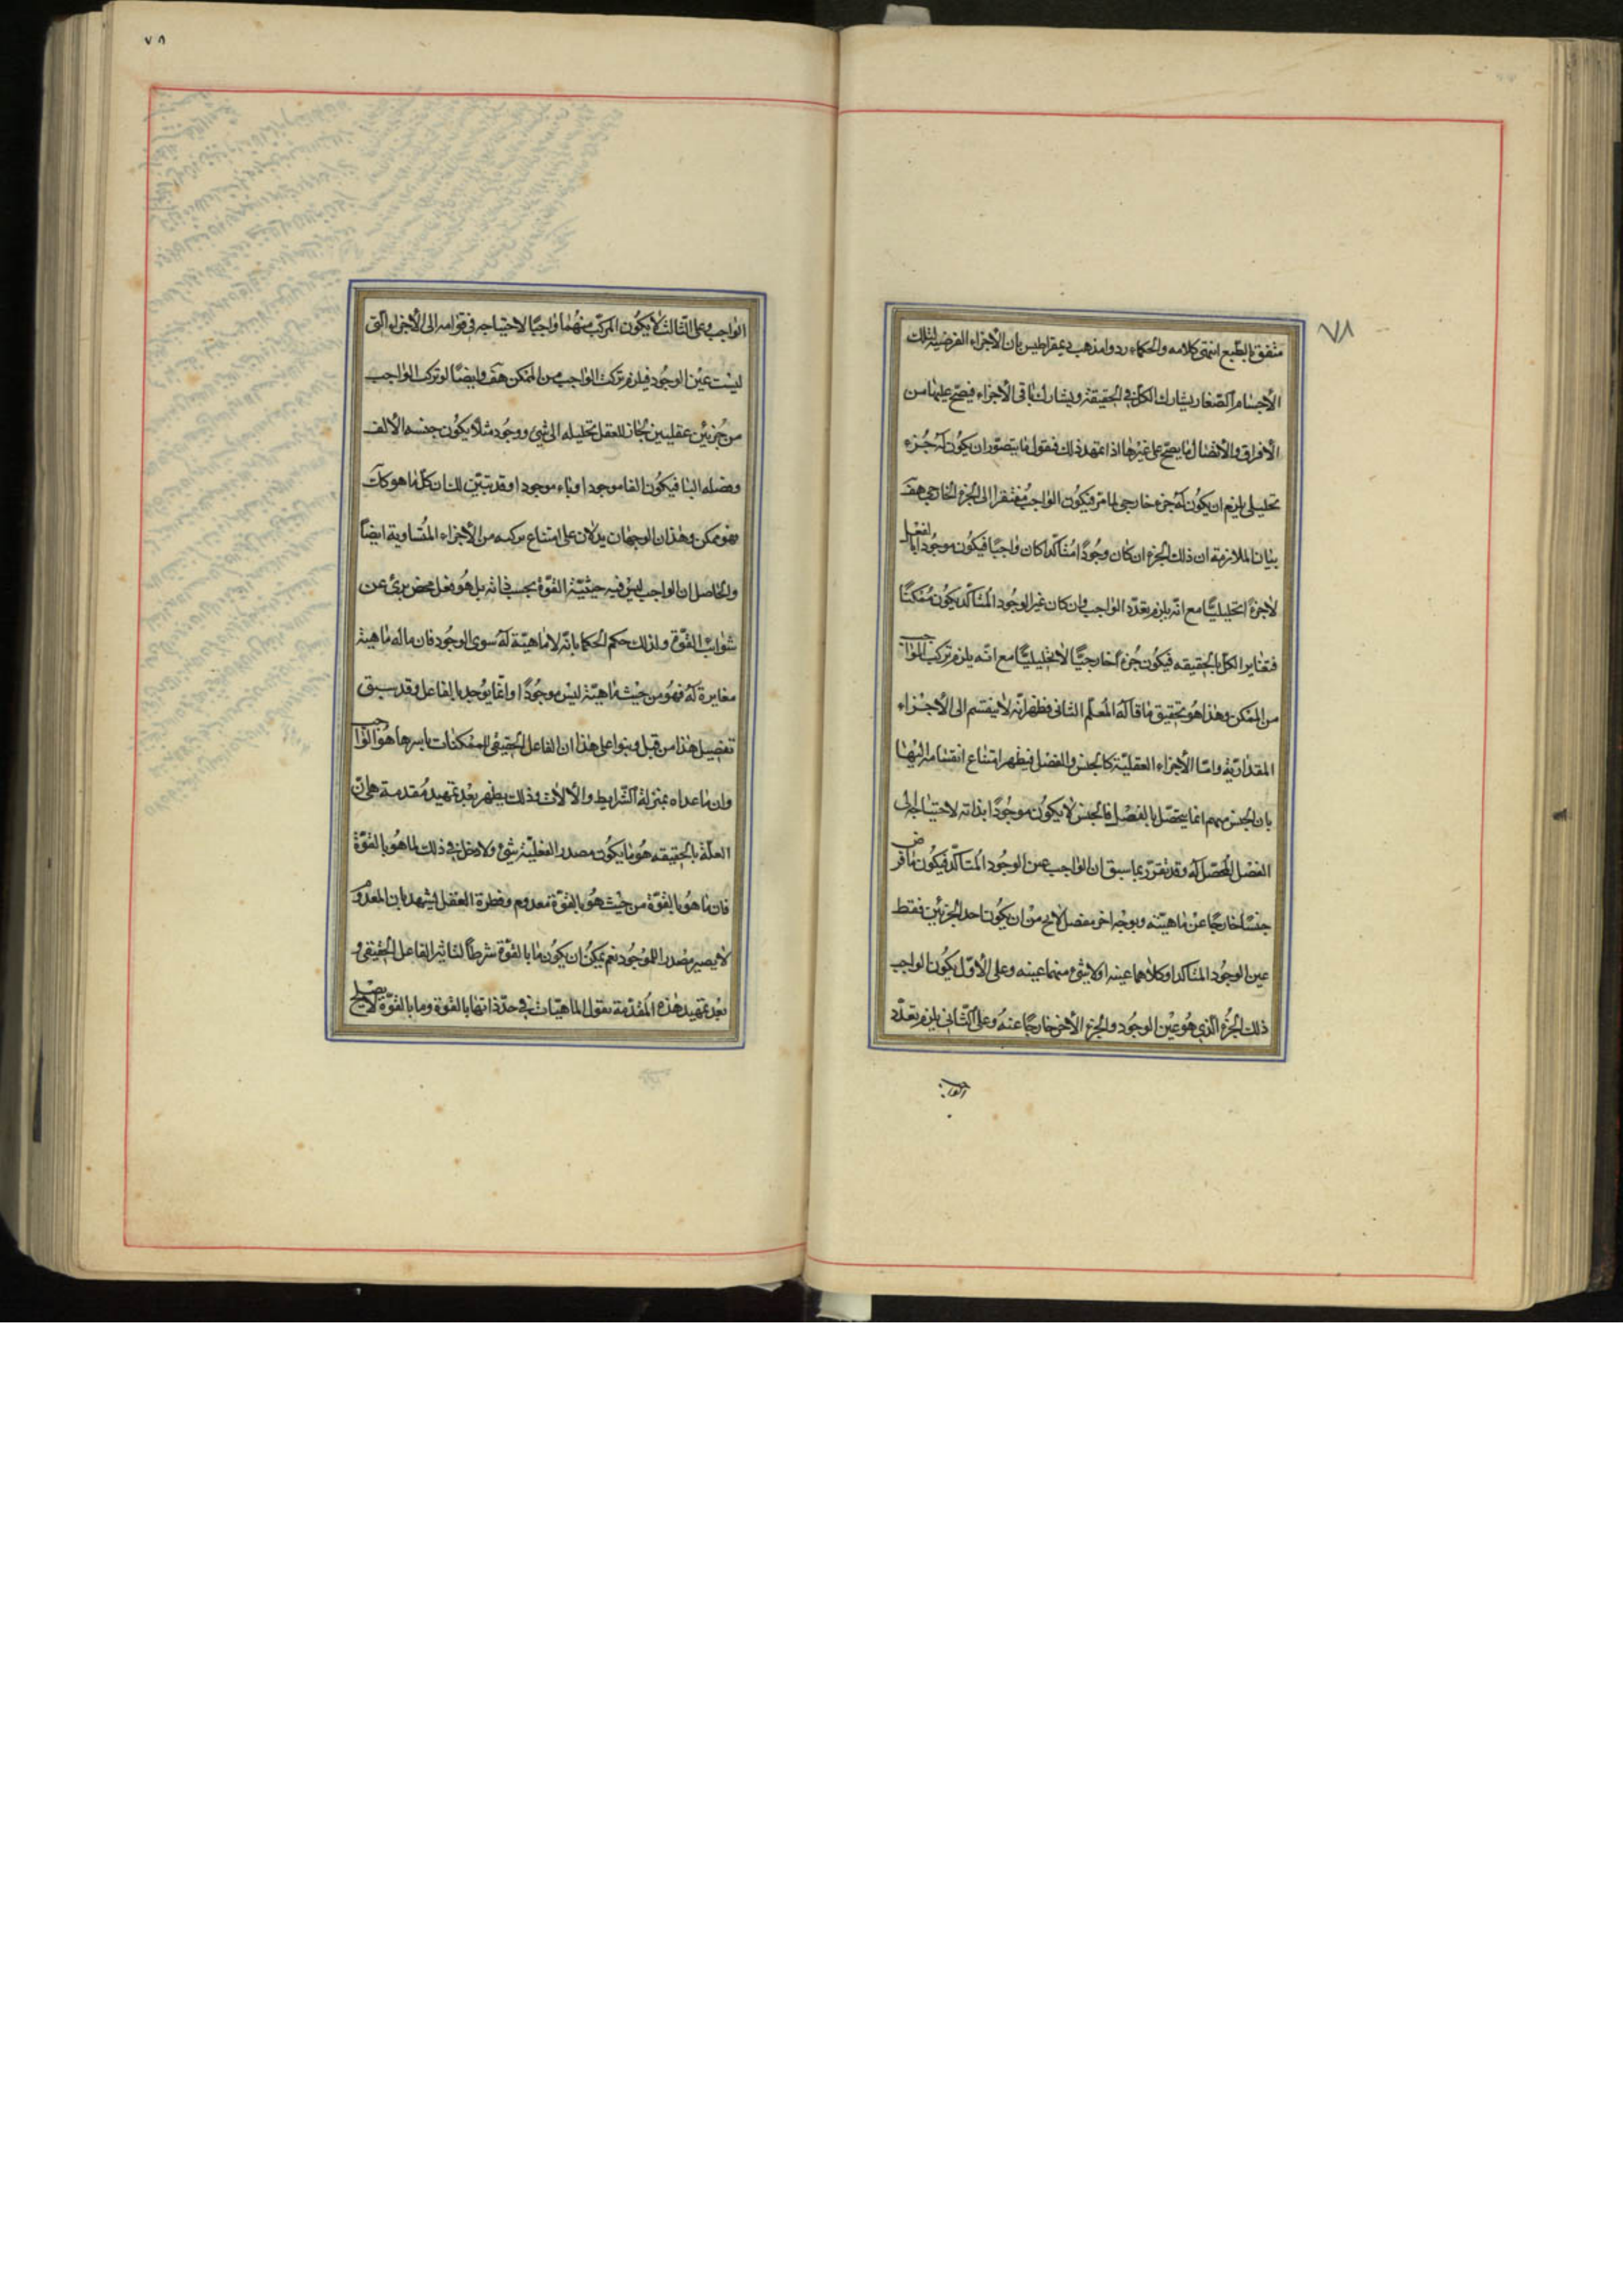 ٧٨
متفق بالطبع انتهى كلامه والحكماء ردوا مذهب ديمقراطيس بان الأجزاء الفرضية لتلك
الأجسام الصغار يشارك الكل في الحقيقة ويشارك باقي الأجزاء فيصح عليها من
الأفراق والأتصال ما يصح على غيرها اذا تمهد ذلك فنقول ما يتصور ان يكون له جزء
تحليلي يلزم ان يكون له جزء خارجي لما مر فيكون الواجب مفتقرا الى الجزء الخارجي هف
بيان الملازمة ان ذلك الجزء ان كان وجودا متأكدا كان واجبا فيكون موجودا بالفعل
لاجزءً تحليليا مع انه يلزم تعدد الواجب وان كان غير الوجود المتأكد يكون ممكنا
فتغاير الكل بالحقيقه فيكون جزءً خارجيا لا تحليليا مع انه يلزم تركب الواجب
من الممكن وهذا هو تحقيق ما قاله المعلم الثاني فظهر انه لا ينقسم الى الأجزاء
المقدارية واما الأجزاء العقلية كالجنس والفصل فيظهر امتناع انقسامه اليها
بان الجنس مبهم انما يتحصل بالفصل فالجنس لا يكون موجودا بذاته لاحتياجه الى
الفصل المحصل له وقد تقرر بما سبق ان الواجب عين الوجود المتأكد فيكون ما فرض
جنسا خارجا عن ماهيته وبوجه اخر مفصل لايخ من ان يكون احد الجزئين فقط
عين الوجود المتاكد او كلاهما عينه اولا شئ منهما عينه وعلى الاول يكون الواجب
ذلك الجزء الذي هو عين الوجود والجزء الأخر خارجا عنه وعلى الثاني يلزم تعدد
الواجب
٧٨
الواجب وعلى الثالث لا يكون المركب منهما واجبا لاحتياجه في قوامه الى الأجزاء التي
ليست عين الوجود فيلزم تركب الواجب من الممكن هف وايضا لو تركب الواجب
من جزئين عقليين لجاز للعقل تحليله الى شئ ووجود مثلا يكون جنسه الألف
وفصله البا فيكون الفا موجودا وباء موجودا وقد تبين لك ان كل ما هو كذلك
فهو ممكن وهذان الوجهان يدلان على امتناع تركبه من الأجزاء المتساوية ايضاً
والحاصل ان الواجب ليس فيه حيثية القوة بحسب ذاته بل هو فعل محض برئ عن
شوايب القوة ولذلك حكم الحكما بانه لا ماهية له سوى الوجود فان ما له ماهية
مغايرة له فهو من حيث ماهيته ليس موجودا وانما يوجد بالفاعل وقد سبق
تفصيل هذا من قبل وبنوا على هذا ان الفاعل الحقيقي للممكنات باسرها هو الواجب
وان ما عداه بمنزلة الشرايط والألات وذلك يظهر بعد تمهيد مقدمة هي ان
العلة بالحقيقه هو ما يكون مصدر الفعلية شئ ولا دخل في ذلك لما هو بالقوة
فان ما هو بالقوة من حيث هو بالقوة معدوم وفطرة العقل يشهد بان المعدوم
لا يصير مصدرا للموجود نعم يمكن ان يكون ما بالقوة شرطاً لتاثير الفاعل الحقيقي و
بعد تمهيد هذه المقدمة نقول الماهيات في حد ذاتها بالقوة وما بالقوة لا يصلح